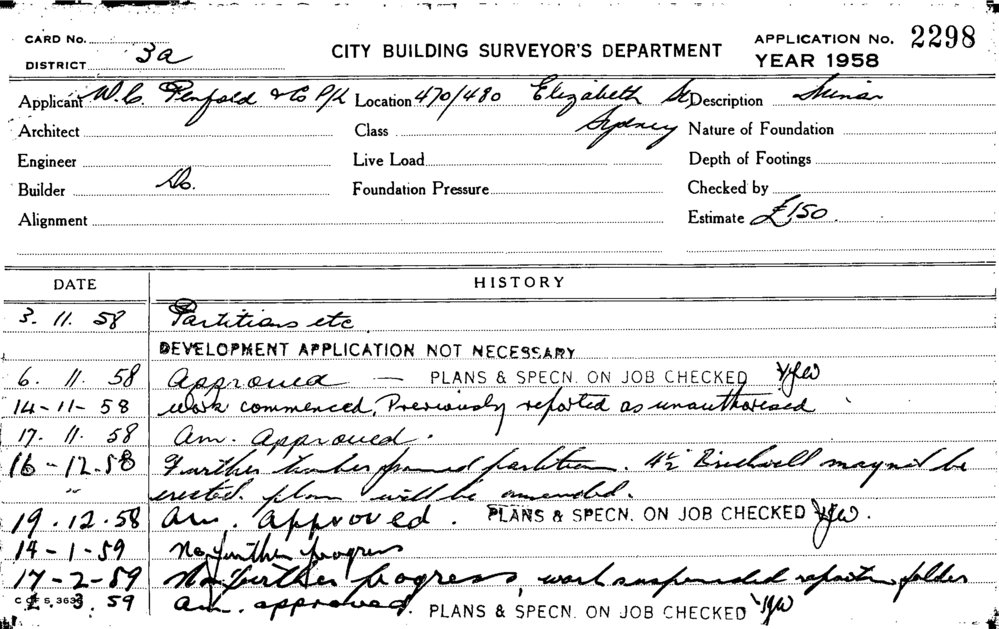 CARD No.
DISTRICT 3a
CITY BUILDING SURVEYOR'S DEPARTMENT
APPLICATION No. 2298
YEAR 1958
Applicant W. C. Penfold & Co P/L Location 470/480 Elizabeth St Description Minor
Architect Class Sydney Nature of Foundation
Engineer Live Load Depth of Footings
Builder Do. Foundation Pressure Checked by
Alignment Estimate £150
DATE HISTORY
3. 11. 58 Partitions etc
DEVELOPMENT APPLICATION NOT NECESSARY
6. 11. 58 Approved — PLANS & SPECN. ON JOB CHECKED
14-11-58 work commenced, Previously reported as unauthorised
17. 11. 58 Am. Approved.
16-12-58 Further timber framed partition. 4½" Brickwall may not be
" erected. plan will be amended.
19.12.58 Am. Approved. PLANS & SPECN. ON JOB CHECKED
14-1-59 No further progress
17-2-59 No further progress, work suspended report in folder
2. 3. 59 Am. approved. PLANS & SPECN. ON JOB CHECKED